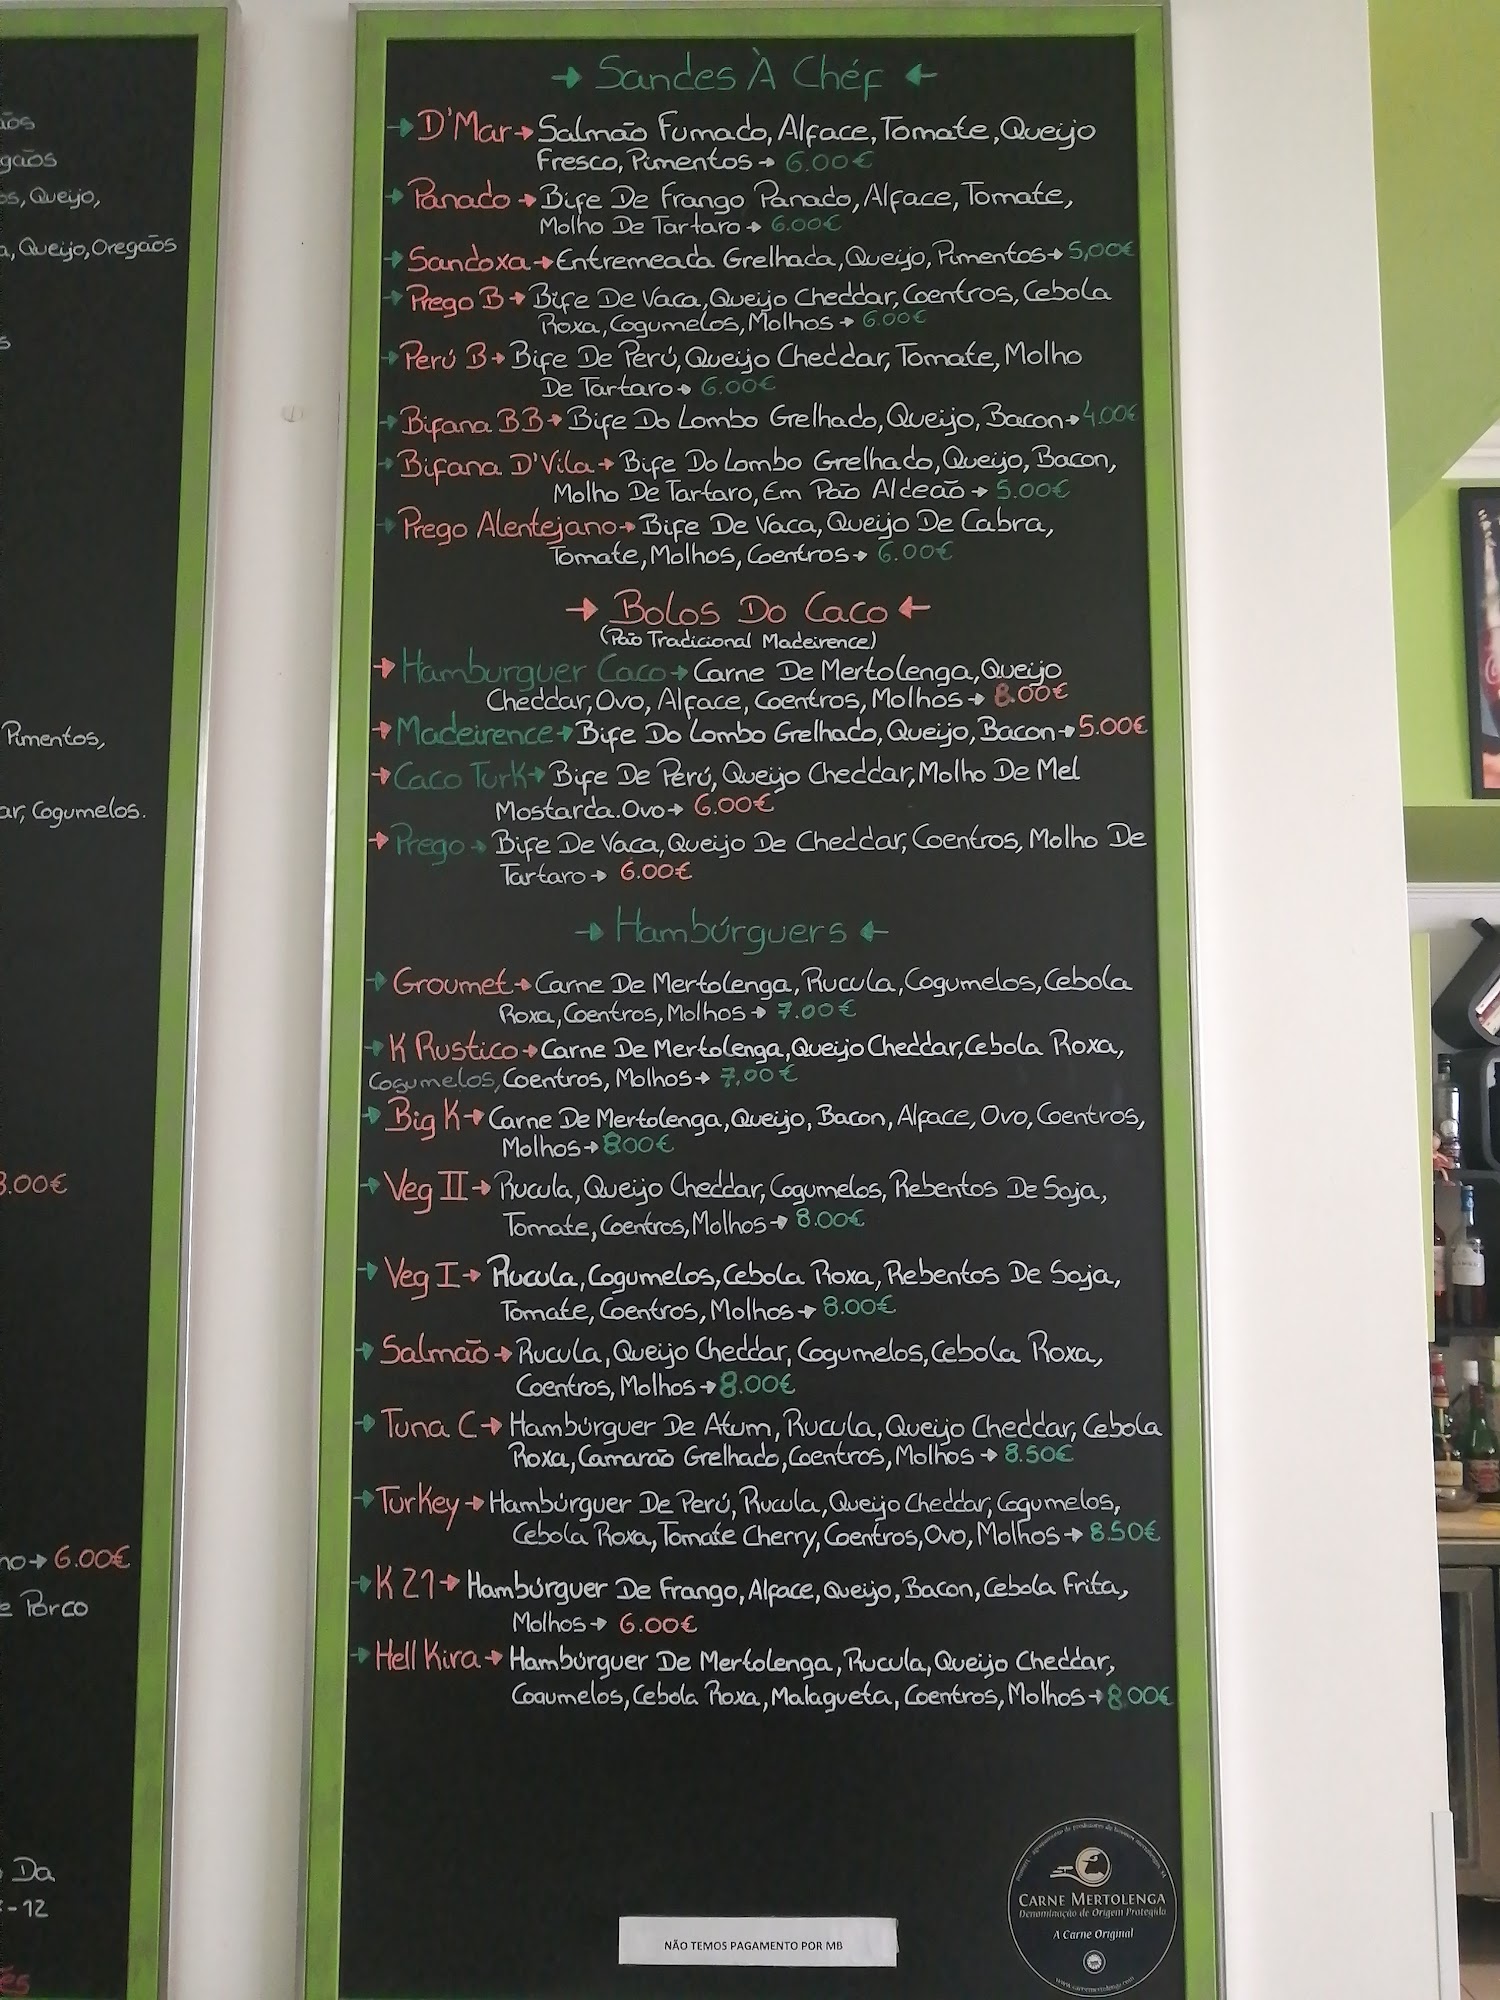 ãos
gãos
os, Queijo,
a, Queijo, Oregãos
s
Pimentos,
ar, Cogumelos.
8.00€
no→ 6.00€
e Porco
Da
-12
és
→ Sandes À Chéf ←
→ D'Mar→ Salmão Fumado, Alface, Tomate, Queijo
Fresco, Pimentos→ 6.00€
→ Panado→ Bife De Frango Panado, Alface, Tomate,
Molho De Tartaro→ 6.00€
→ Sandoxa→ Entremeada Grelhada, Queijo, Pimentos→ 5,00€
→ Prego B→ Bife De Vaca, Queijo Cheddar, Coentros, Cebola
Roxa, Cogumelos, Molhos→ 6.00€
→ Perú B→ Bife De Perú, Queijo Cheddar, Tomate, Molho
De Tartaro→ 6.00€
→ Bifana BB→ Bife Do Lombo Grelhado, Queijo, Bacon→ 4.00€
→ Bifana D'Vila→ Bife Do Lombo Grelhado, Queijo, Bacon,
Molho De Tartaro, Em Pão Aldeão→ 5.00€
→ Prego Alentejano→ Bife De Vaca, Queijo De Cabra,
Tomate, Molhos, Coentros→ 6.00€
→ Bolos Do Caco ←
(Pão Tradicional Madeirence)
→ Hamburguer Caco→ Carne De Mertolenga, Queijo
Cheddar, Ovo, Alface, Coentros, Molhos→ 8.00€
→ Madeirence→ Bife Do Lombo Grelhado, Queijo, Bacon→ 5.00€
→ Caco Turk→ Bife De Perú, Queijo Cheddar, Molho De Mel
Mostarda. Ovo→ 6.00€
→ Prego→ Bife De Vaca, Queijo De Cheddar, Coentros, Molho De
Tartaro→ 6.00€
→ Hambúrguers ←
→ Groumet→ Carne De Mertolenga, Rucula, Cogumelos, Cebola
Roxa, Coentros, Molhos→ 7.00€
→ K Rustico→ Carne De Mertolenga, Queijo Cheddar, Cebola Roxa,
Cogumelos, Coentros, Molhos→ 7.00€
→ Big K→ Carne De Mertolenga, Queijo, Bacon, Alface, Ovo, Coentros,
Molhos→ 8.00€
→ Veg II→ Rucula, Queijo Cheddar, Cogumelos, Rebentos De Soja,
Tomate, Coentros, Molhos→ 8.00€
→ Veg I→ Rucula, Cogumelos, Cebola Roxa, Rebentos De Soja,
Tomate, Coentros, Molhos→ 8.00€
→ Salmão→ Rucula, Queijo Cheddar, Cogumelos, Cebola Roxa,
Coentros, Molhos→ 8.00€
→ Tuna C→ Hambúrguer De Atum, Rucula, Queijo Cheddar, Cebola
Roxa, Camarão Grelhado, Coentros, Molhos→ 8.50€
→ Turkey→ Hambúrguer De Perú, Rucula, Queijo Cheddar, Cogumelos,
Cebola Roxa, Tomate Cherry, Coentros, Ovo, Molhos→ 8.50€
→ K 21→ Hambúrguer De Frango, Alface, Queijo, Bacon, Cebola Frita,
Molhos→ 6.00€
→ Hell Kira→ Hambúrguer De Mertolenga, Rucula, Queijo Cheddar,
Cogumelos, Cebola Roxa, Malagueta, Coentros, Molhos→ 8.00€
CARNE MERTOLENGA
Denominação de Origem Protegida
A Carne Original
www.carnemertolenga.com
NÃO TEMOS PAGAMENTO POR MB